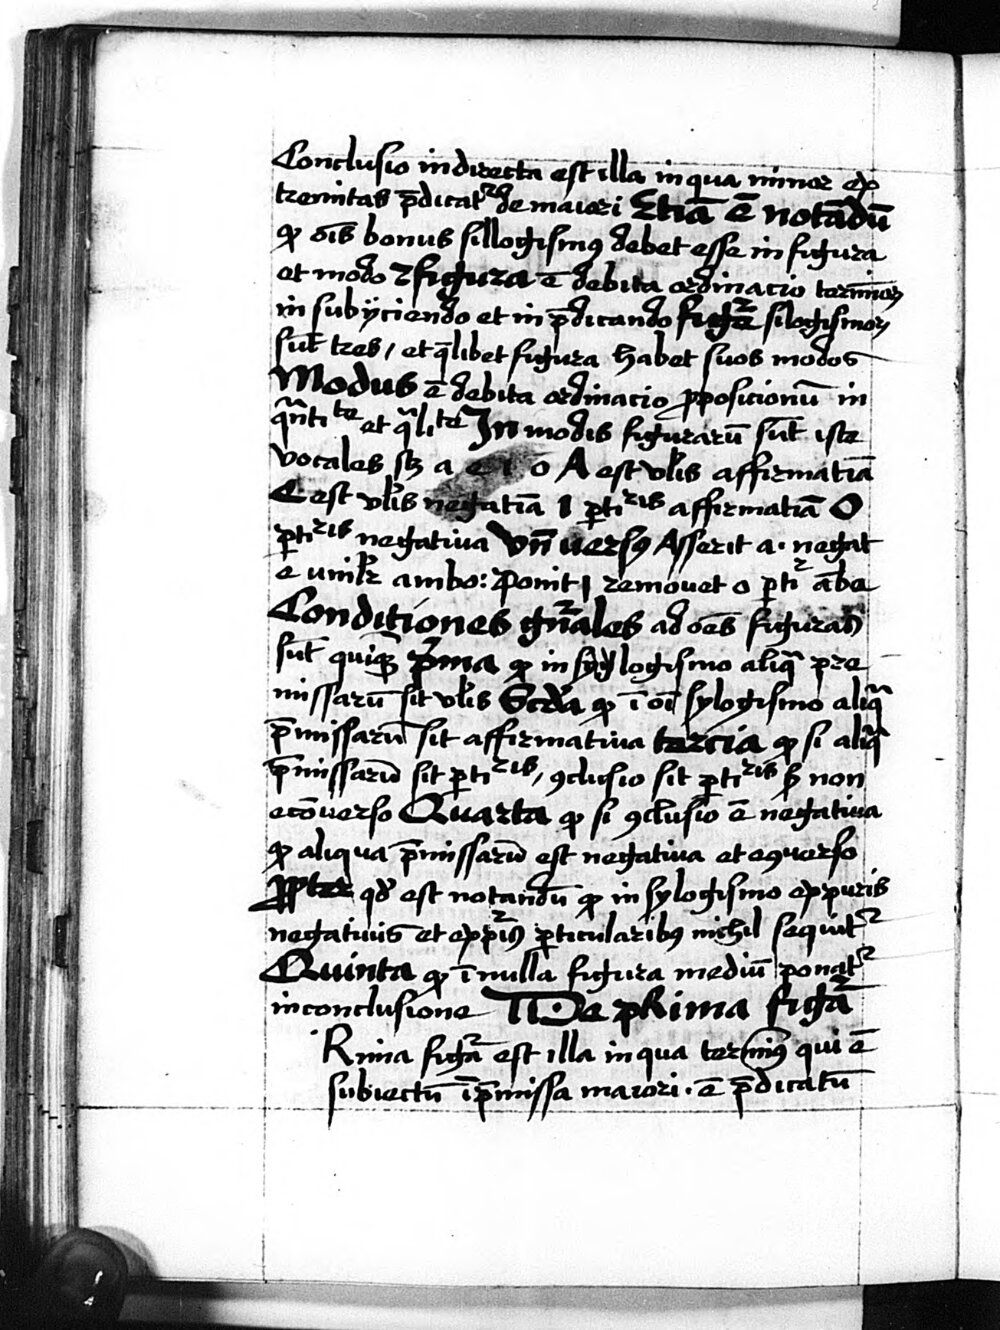 Conclusio indirecta est illa in qua minor ex
tremitas p̄dicatᷣ de maiori Etiā ē notādū
ꝙ oīs bonus sillogismꝰ debet esse in figura
et modo ⁊ figura ē debita ordinacio terminoꝝ
in subyciendo et in p̄dicando figᷓ silogismoꝝ
sūt tres / et q̄libet figura habet suos modos
Modus ē debita ordinacio ꝓposicionū in
qᷓntitᵗᵉ et qᷓliᵗᵉ In modis figurarū sūt iste
vocales sꝫ a e i o A est vl̄is affirmatiā
E est vl̄is negatiā I ꝑtiʳⁱˢ affirmatiā O
ꝑtiʳⁱˢ negativa Vn̄ versꝰ Asserit a · negat
e univl̄r ambo : Ponit I removet o ꝑtiᷣ ābe
Conditiones gn̄ales ad oēs figuraꝝ
sūt quinqꝫ p̄ma ꝙ in sylogismo aliqᷓ pre
missarū sit vl̄is Scd̄a ꝙ ī oī sylogismo aliqᷓ
p̄missarū sit affirmativa tercia ꝙ si aliqᷓ
p̄missarū sit ꝑtiʳⁱˢ, ꝯclusio sit ꝑtiʳⁱˢ sꝫ non
ecōverso Quarta ꝙ si ꝯclusio ē negativa
ꝙ aliqua p̄missarū est negativa et eꝯverso
Ꝓpter qd̄ est notandū ꝙ in sylogismo ex puris
negativis et ex puris ꝑticularibꝰ nichil sequitᷣ
Quinta ꝙ ī nulla figura mediū ponatᷣ
in conclusione De prima figᷓ
Rima figᷓ est illa in qua terminꝰ qui ē
subiectū ī p̄missa maiori · ē p̄dicatū